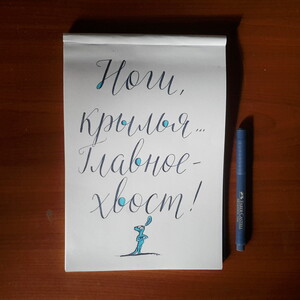 Ноги,
крылья...
Главное-
хвост!